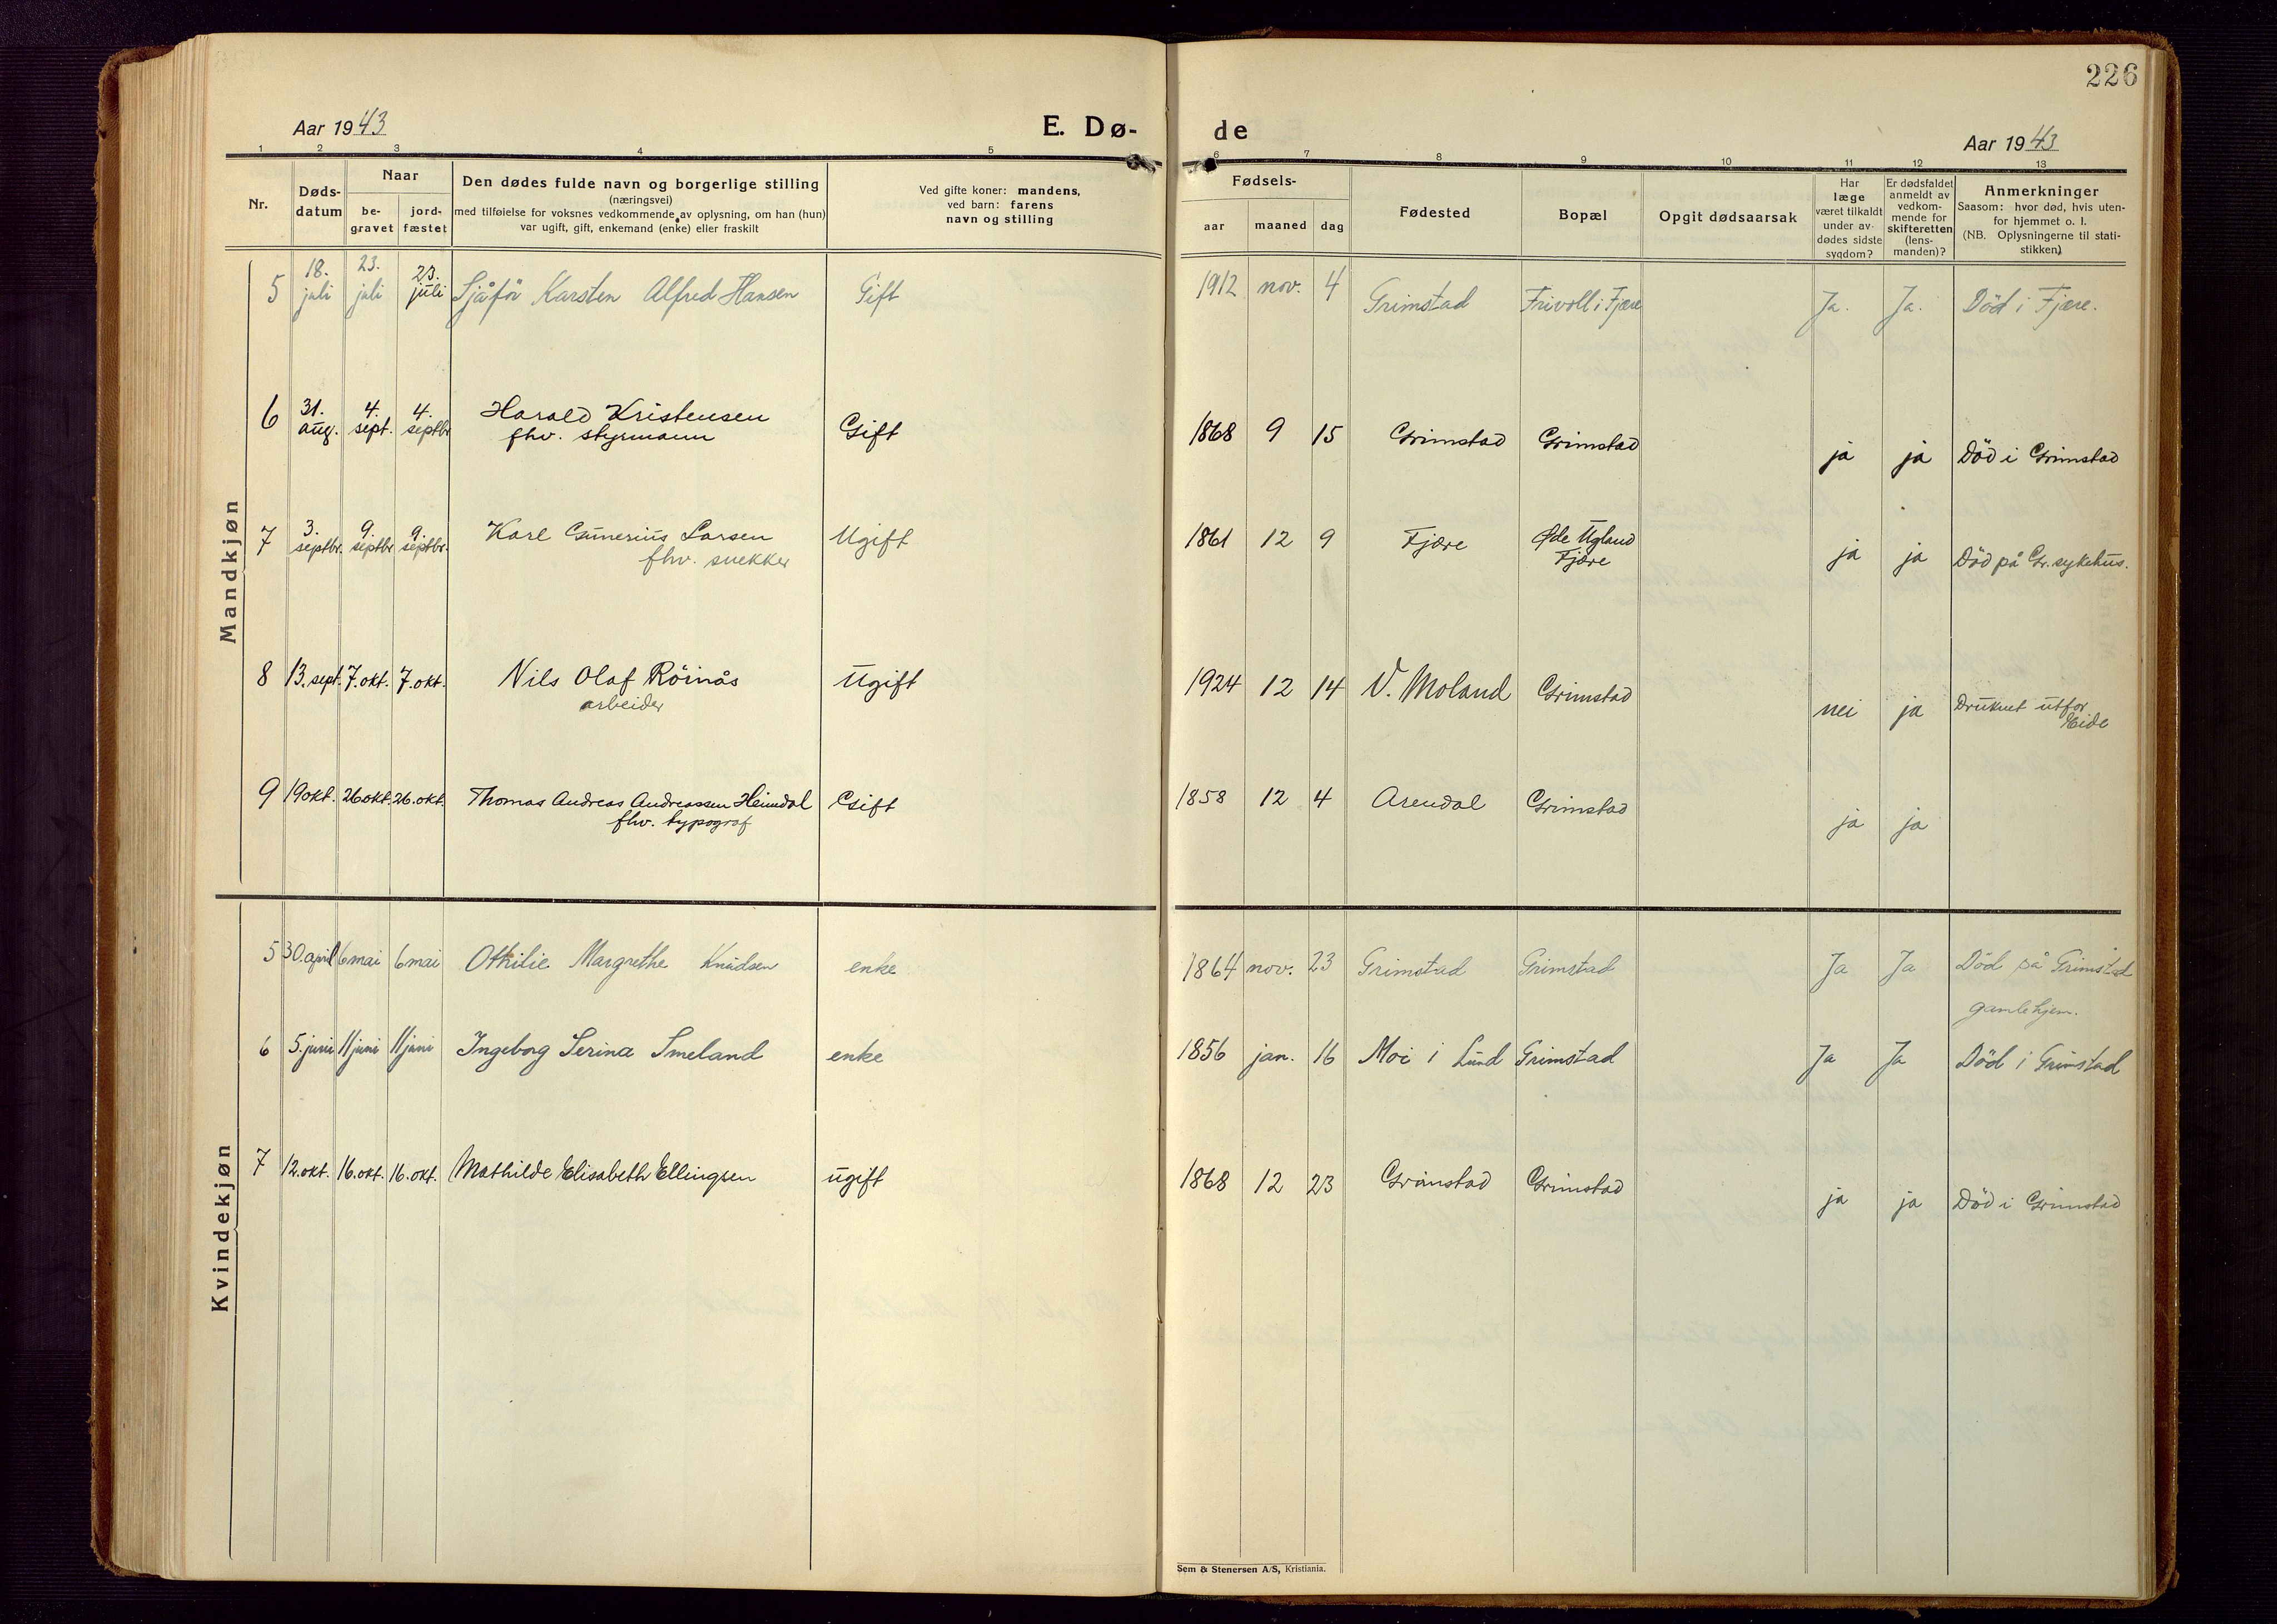 226
Aar 1943
E. Dø-
de
Aar 1943
1 2 3 4 5 6 7 8 9 10 11 12 13
Nr.
Døds-
datum
Naar
be-
gravet
jord-
fæstet
Den dødes fulde navn og borgerlige stilling
(næringsvei)
med tilføielse for voksnes vedkommende av oplysning, om han (hun)
var ugift, gift, enkemand (enke) eller fraskilt
Ved gifte koner: mandens,
ved barn: farens
navn og stilling
Fødsels-
aar maaned dag
Fødested
Bopæl
Opgit dødsaarsak
Har
læge
været tilkaldt
under av-
dødes sidste
sygdom?
Er dødsfaldet
anmeldt av
vedkom-
mende for
skifteretten
(lens-
manden)?
Anmerkninger
Saasom: hvor død, hvis uten-
for hjemmet o. l.
(NB. Oplysningerne til stati-
stikken)
Mandkjøn
5 18. juli 23. juli 23. juli Sjåför Karsten Alfred Hansen Gift 1912 nov. 4 Grimstad Frivoll i Fjære Ja. Ja. Död i Fjære.
6 31. aug. 4. sept. 4. septbr Harald Kristensen Gift 1868 9 15 Grimstad Grimstad ja ja Död i Grimstad
fhv. styrmann
7 3. septbr. 9. septbr 9. septbr. Karl Gunerius Larsen Ugift 1861 12 9 Fjære Øde Ugland ja ja Död på Gr. sykehus.
fhv. snekker Fjære
8 13. sept. 7. okt. 7. okt. Nils Olaf Röinås Ugift 1924 12 14 V. Moland Grimstad nei ja Druknet utfor
arbeider Heide
9 19 okt. 26 okt. 26. okt. Thomas Andreas Andreassen Heimdal Gift 1858 12 4 Arendal Grimstad ja ja
fhv. typograf
Kvindekjøn
5 30. april 6 mai 6 mai Othilie Margrethe Knudsen enke 1864 nov. 23 Grimstad Grimstad Ja Ja Död på Grimstad
gamlehjem.
6 5. juni 11 juni 11 juni Ingeborg Serina Smeland enke 1856 jan. 16 Moi i Lund Grimstad Ja Ja Död i Grimstad
7 12. okt. 16. okt. 16. okt. Mathilde Elisabeth Ellingsen ugift 1868 12 23 Grimstad Grimstad ja ja Död i Grimstad
Sem & Stenersen A/S, Kristiania.